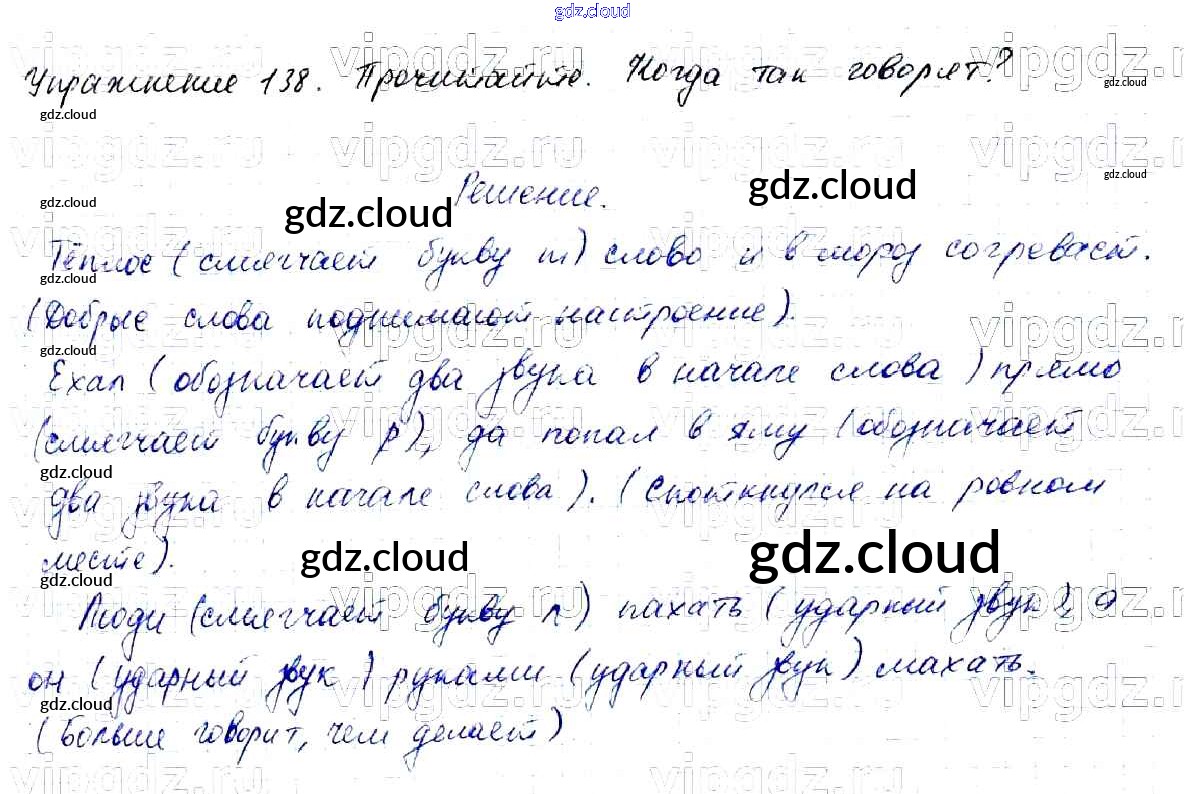 gdz.cloud
Упражнение 138. Прочитайте. Когда так говорят?
gdz.cloud
gdz.cloud
gdz.cloud
gdz.cloud
Решение.
gdz.cloud
gdz.cloud
gdz.cloud
Тёплое (смягчает букву т) слово и в мороз согревает.
gdz.cloud
(Добрые слова поднимают настроение).
gdz.cloud
Ехал (обозначает два звука в начале слова) прямо
(смягчает букву р), да попал в яму (обозначает
gdz.cloud
два звука в начале слова). (Споткнулся на ровном
месте).
gdz.cloud
gdz.cloud
gdz.cloud
Люди (смягчает букву л) пахать (ударный звук), а
он (ударный звук) руками (ударный звук) махать.
gdz.cloud
(Больше говорит, чем делает)
vipgdz.ru